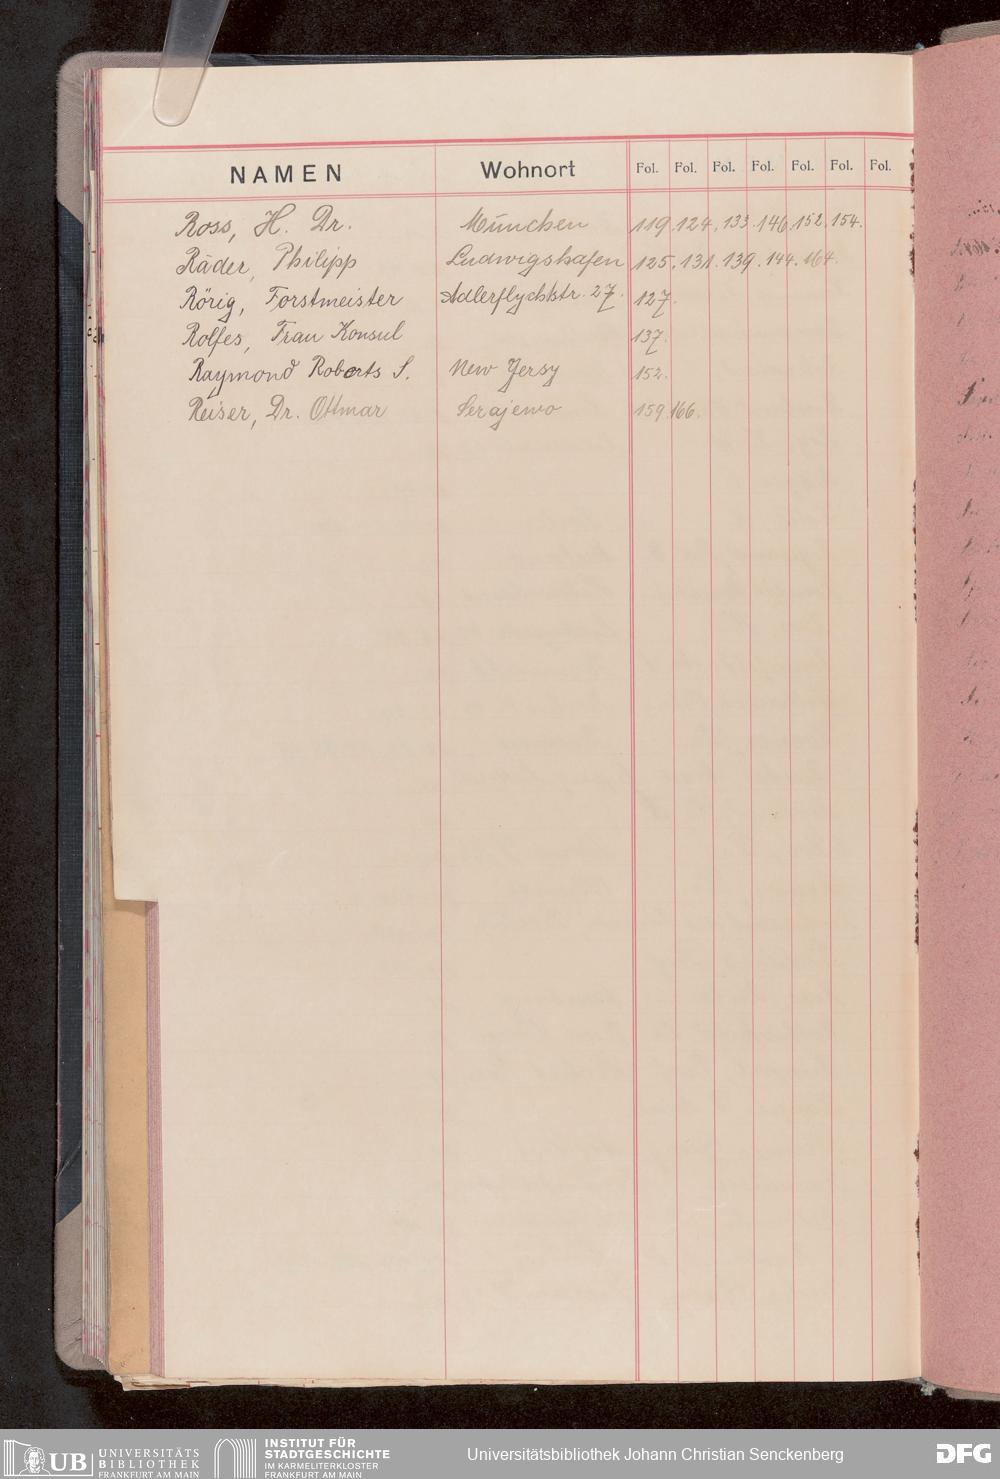 NAMEN Wohnort Fol. Fol. Fol. Fol. Fol. Fol. Fol.
Ross, H. Dr. München 119. 124. 133. 146. 152. 154.
Räder, Philipp Ludwigshafen 125. 131. 139. 144. 164.
Rörig, Forstmeister Adlerflychtstr. 27. 127.
Rolfes, Frau Konsul 137.
Raymond Roberts S. New Jersy 152.
Reiser, Dr. Ottmar Serajewo 159. 166.
UB UNIVERSITÄTS BIBLIOTHEK FRANKFURT AM MAIN
INSTITUT FÜR STADTGESCHICHTE IM KARMELITERKLOSTER FRANKFURT AM MAIN
Universitätsbibliothek Johann Christian Senckenberg
DFG